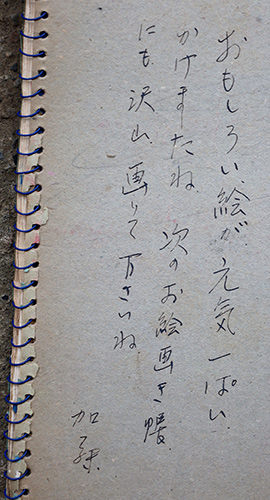 おもしろい絵が元気一ぱい
かけましたね 次のお絵画き帳
にも沢山画いて下さいね
加藤